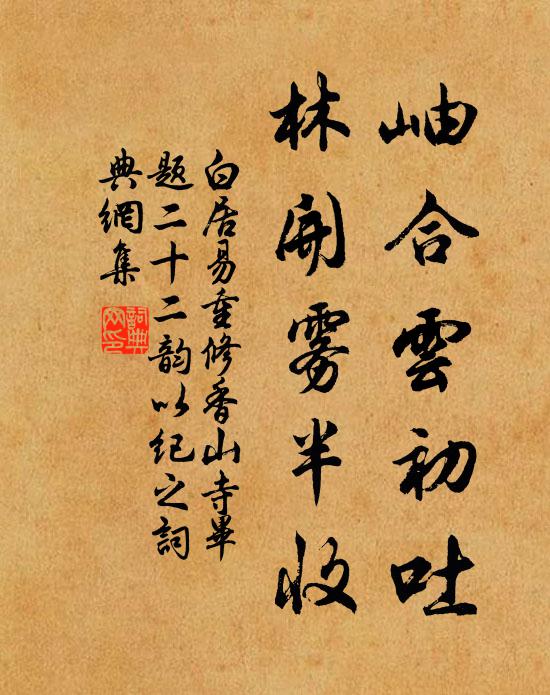 岫合雲初吐
林開霧半收
白居易重修香山寺畢
題二十二韵以纪之詞
典網集
詞典網印